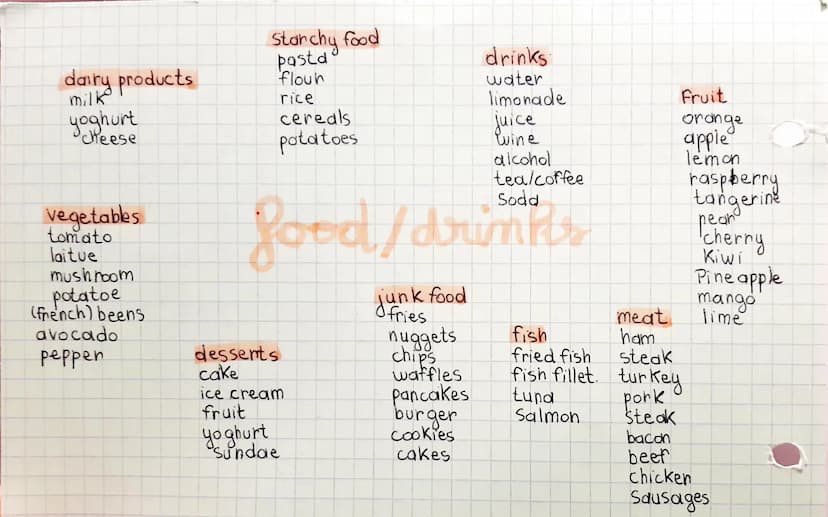 starchy food
pasta
flouh
rice
cereals
potatoes
dairy products
milk
yoghurt
cheese
drinks
water
limonade
juice
wine
alcohol
tea/coffee
soda
fruit
orange
apple
lemon
raspberry
tangerine
pear
cherry
kiwi
Pineapple
mango
lime
food/drinks
vegetables
tomato
laitue
mushroom
potatoe
(french) beens
avocado
pepper
desserts
cake
ice cream
fruit
yoghurt
sundae
junk food
fries
nuggets
chips
waffles
pancakes
burger
cookies
cakes
fish
fried fish
fish fillet.
tuna
salmon
meat
ham
steak
turkey
pork
steak
bacon
beef
chicken
sausages